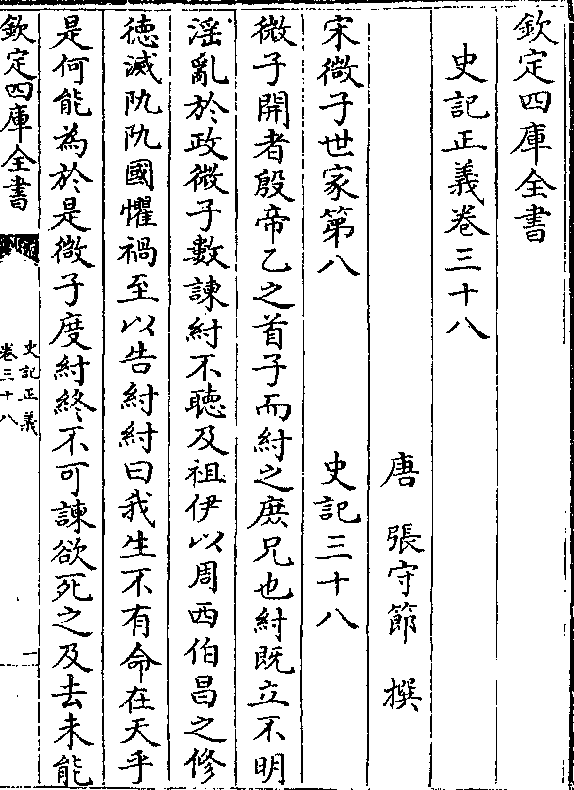 欽定四庫全書
史記正義卷三十八
唐 張守節 撰
宋微子世家第八 史記三十八
微子開者殷帝乙之首子而紂之庶兄也紂既立不明
淫亂於政微子數諫紂不聽及祖伊以周西伯昌之修
德滅阢阢國懼禍至以告紂紂曰我生不有命在天乎
是何能為於是微子度紂終不可諫欲死之及去未能
欽定四庫全書
史記正義
卷三十八
一